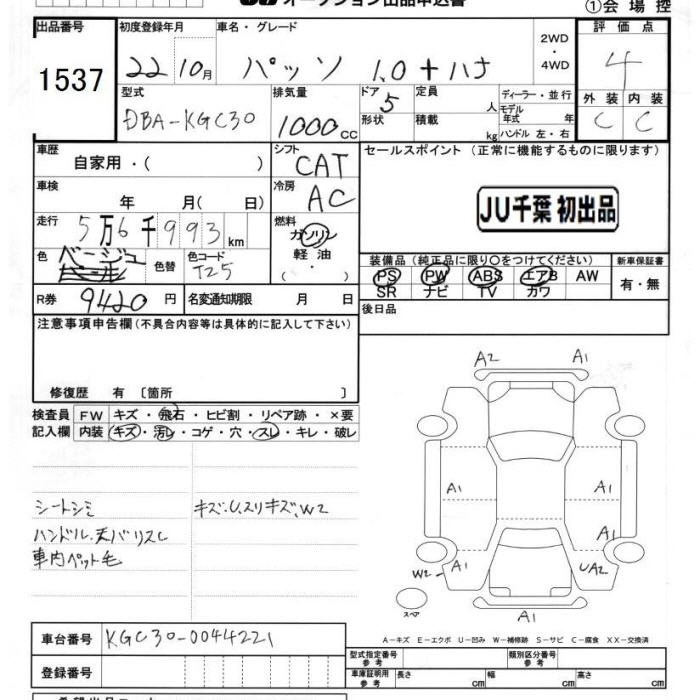 オークション出品申込書
①会場控
出品番号 初度登録年月 車名・グレード 2WD・4WD 評価点
1537 22 10月 パッソ 1.0 +ハナ 4
型式 排気量 ドア 定員 人 ディーラー・並行 外装 内装
DBA-KGC30 1000cc 5 形状 積載 kg モデル年式 年 ハンドル 左・右 C C
車歴 自家用・( ) シフト CAT セールスポイント (正常に機能するものに限ります)
車検 年 月( 日) 冷房 AC
JU千葉 初出品
走行 5万6千993km 燃料 ガソリン 軽油 ( ・ )
色 ベージュ 色替 色コード T25
装備品(純正品に限り○をつけてください) 新車保証書
PS PW ABS エアB AW 有・無
SR ナビ TV カワ
R券 9420円 名変通知期限 月 日
後日品
注意事項申告欄(不具合内容等は具体的に記入して下さい)
修復歴 有 〔箇所 〕
検査員 FW キズ・飛石・ヒビ割・リペア跡・×要
記入欄 内装 キズ・汚レ・コゲ・穴・スレ・キレ・破レ
シートシミ キズ・U.スリキズ.W2
ハンドル.天バリスレ
車内ペット毛
A2 A1
A1 A1
A1
W2 A1 UA2
スペア A1
A-キズ E-エクボ U-凹み W-補修跡 S-サビ C-腐食 XX-交換済
車台番号 KGC30-0044221
型式指定番号 参考 類別区分番号 参考
登録番号
車庫証明用 参考 長さ cm 幅 cm 高さ cm